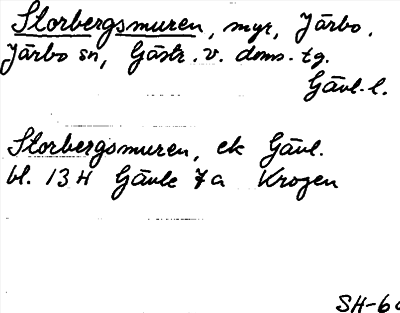 Storbergsmuren, myr, Järbo,
Järbo sn, Gästr. v. doms.-tg.
Gävl. l.
Storbergsmuren, ek Gävl.
bl. 13 H Gävle 7 a Krogen
SH-6